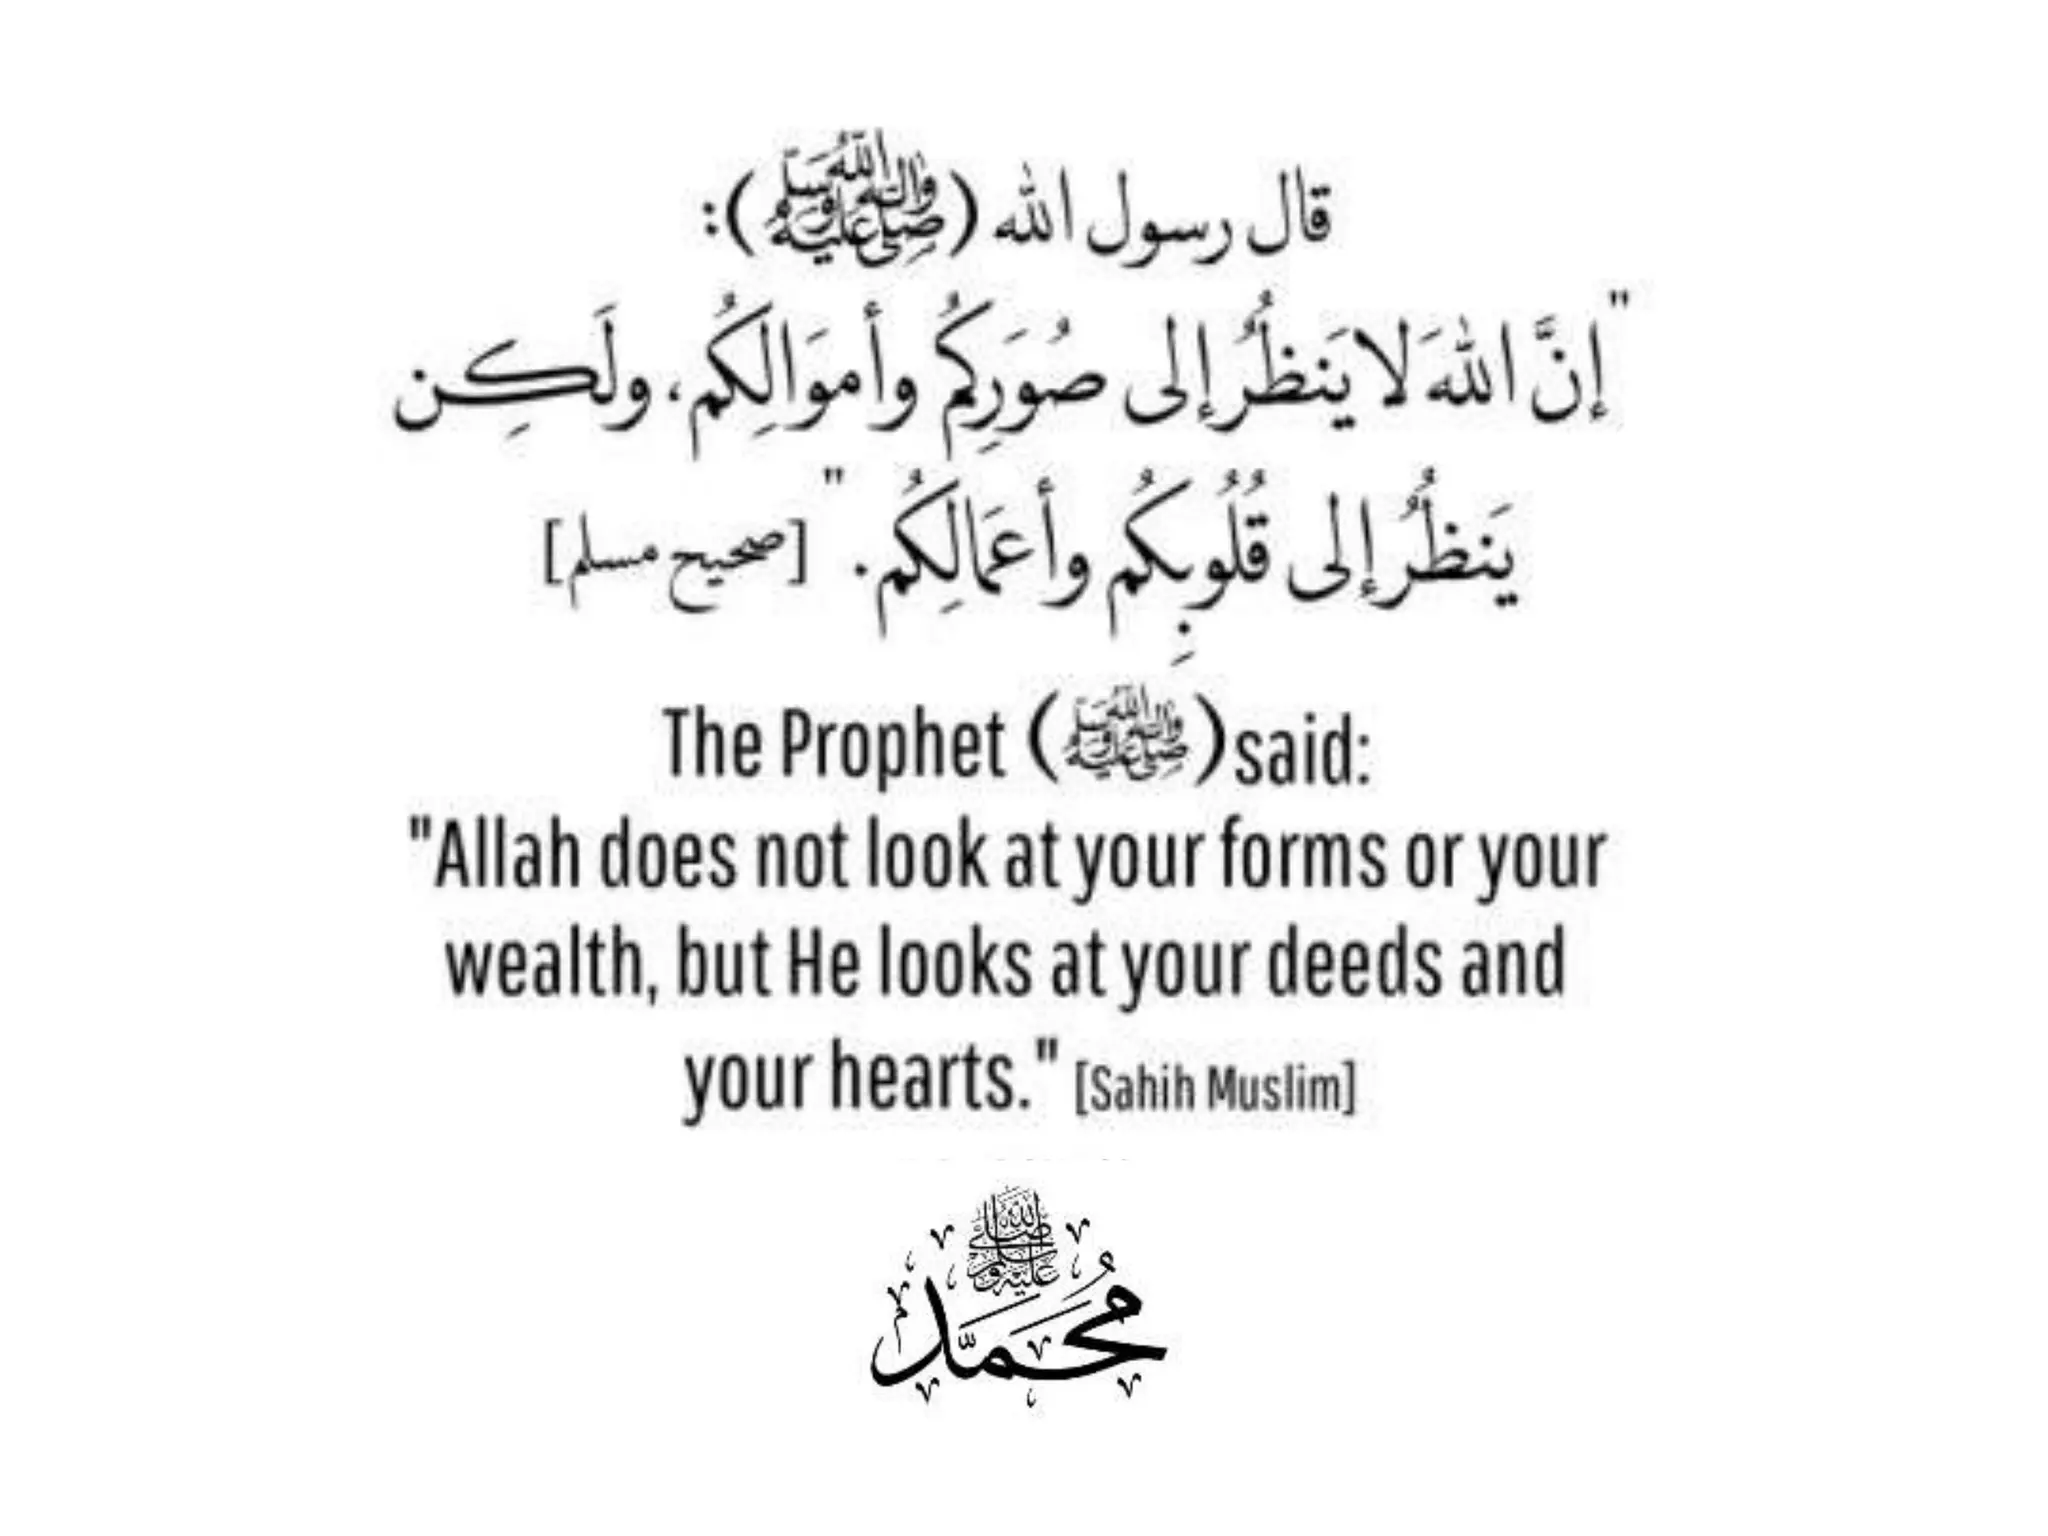 قال رسول الله (صلى الله عليه وآله وسلم):
"إنَّ اللهَ لا يَنظُرُ إلى صُوَرِكُم وأموَالِكُم، ولَكِن
يَنظُرُ إلى قُلُوبِكُم وأعمَالِكُم." [صحيح مسلم]
The Prophet (صلى الله عليه وآله وسلم) said:
"Allah does not look at your forms or your
wealth, but He looks at your deeds and
your hearts." [Sahih Muslim]
صلى الله عليه وسلم
مُحَمَّد